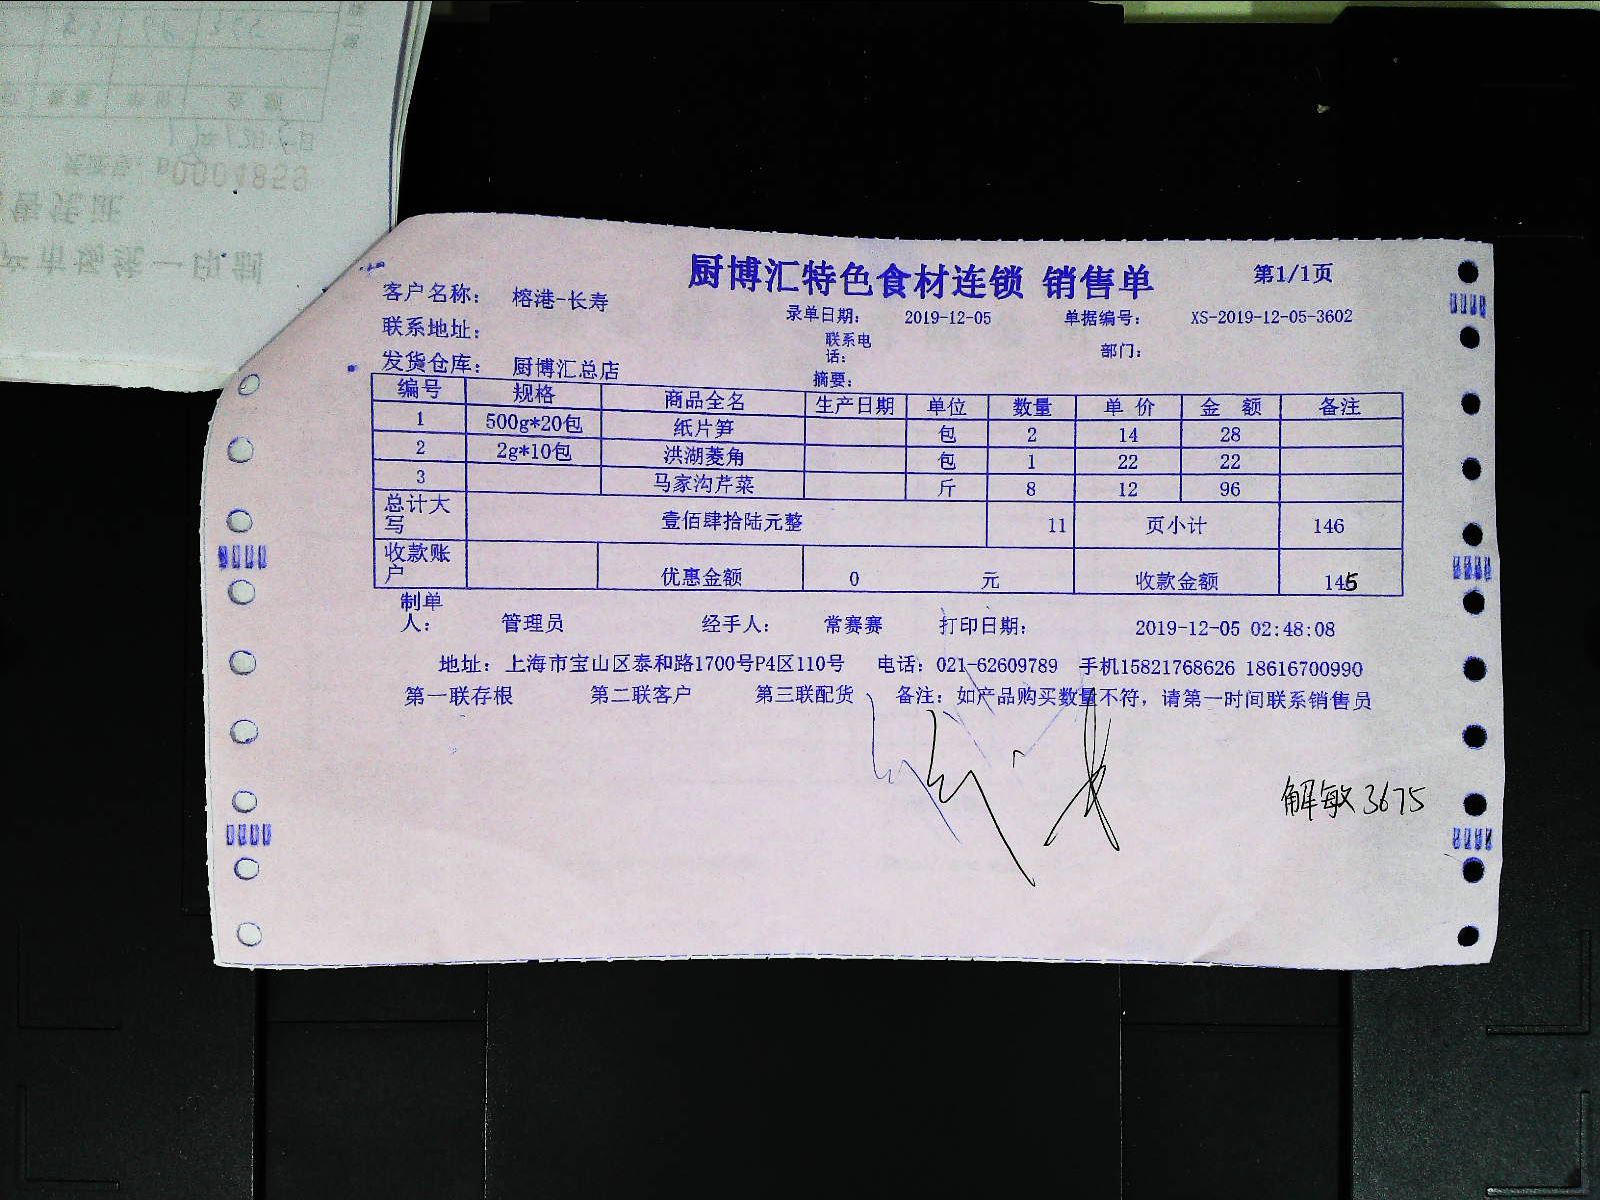 厨博汇特色食材连锁 销售单
第1/1页
客户名称： 榕港-长寿
录单日期： 2019-12-05 单据编号： XS-2019-12-05-3602
联系地址： 联系电话： 部门：
发货仓库： 厨博汇总店 摘要：
编号 规格 商品全名 生产日期 单位 数量 单价 金额 备注
1 500g*20包 纸片笋 包 2 14 28
2 2g*10包 洪湖菱角 包 1 22 22
3 马家沟芹菜 斤 8 12 96
总计大写 壹佰肆拾陆元整 11 页小计 146
收款账户 优惠金额 0 元 收款金额 145
制单人： 管理员 经手人： 常赛赛 打印日期： 2019-12-05 02:48:08
地址：上海市宝山区泰和路1700号P4区110号 电话：021-62609789 手机15821768626 18616700990
第一联存根 第二联客户 第三联配货 备注：如产品购买数量不符，请第一时间联系销售员
解敏3675